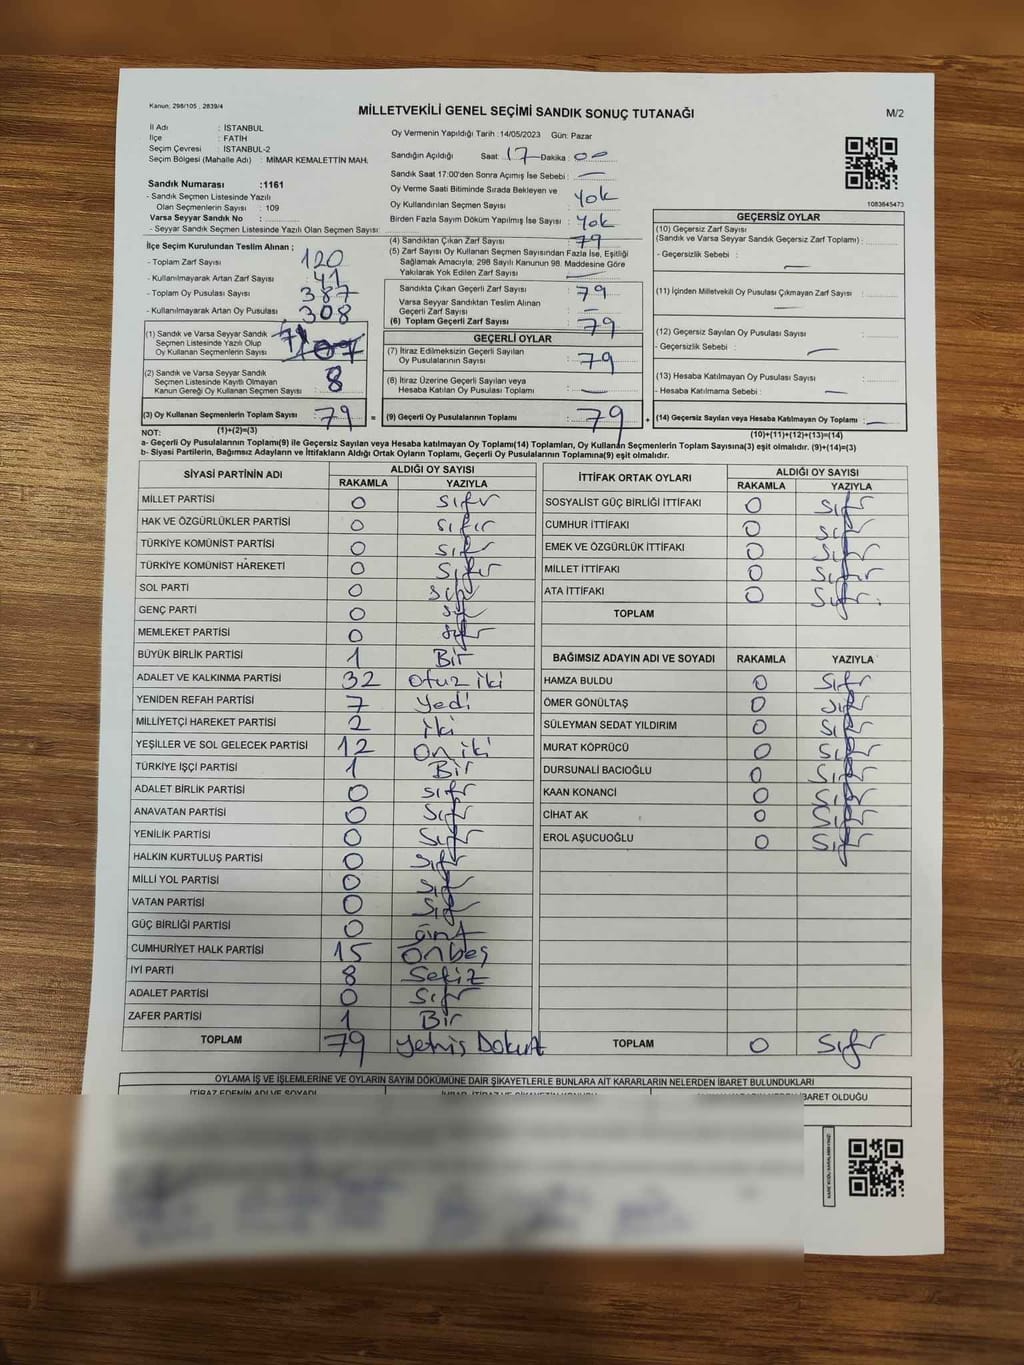 Kanun; 298/105 , 2839/4
MİLLETVEKİLİ GENEL SEÇİMİ SANDIK SONUÇ TUTANAĞI
M/2
İl Adı : İSTANBUL
İlçe : FATİH
Seçim Çevresi : İSTANBUL-2
Seçim Bölgesi (Mahalle Adı) : MİMAR KEMALETTİN MAH.
Sandık Numarası :1161
- Sandık Seçmen Listesinde Yazılı
Olan Seçmenlerin Sayısı : 109
Varsa Seyyar Sandık No :
- Seyyar Sandık Seçmen Listesinde Yazılı Olan Seçmen Sayısı:
Oy Vermenin Yapıldığı Tarih :14/05/2023 Gün: Pazar
Sandığın Açıldığı Saat: 17 Dakika : 00
Sandık Saat 17:00'den Sonra Açımış İse Sebebi : —
Oy Verme Saati Bitiminde Sırada Bekleyen ve
Oy Kullandırılan Seçmen Sayısı : Yok
Birden Fazla Sayım Döküm Yapılmış İse Sayısı : Yok
1083645473
İlçe Seçim Kurulundan Teslim Alınan ;
- Toplam Zarf Sayısı : 120
- Kullanılmayarak Artan Zarf Sayısı : 41
- Toplam Oy Pusulası Sayısı : 387
- Kullanılmayarak Artan Oy Pusulası : 308
(1) Sandık ve Varsa Seyyar Sandık
Seçmen Listesinde Yazılı Olup
Oy Kullanan Seçmenlerin Sayısı :
(2) Sandık ve Varsa Seyyar Sandık
Seçmen Listesinde Kayıtlı Olmayan
Kanun Gereği Oy Kullanan Seçmen Sayısı : 8
(3) Oy Kullanan Seçmenlerin Toplam Sayısı : 79 =
(1)+(2)=(3)
(4) Sandıktan Çıkan Zarf Sayısı : 79
(5) Zarf Sayısı Oy Kullanan Seçmen Sayısından Fazla İse, Eşitliği
Sağlamak Amacıyla; 298 Sayılı Kanunun 98. Maddesine Göre
Yakılarak Yok Edilen Zarf Sayısı : —
Sandıkta Çıkan Geçerli Zarf Sayısı : 79
Varsa Seyyar Sandıktan Teslim Alınan
Geçerli Zarf Sayısı : —
(6) Toplam Geçerli Zarf Sayısı : 79
GEÇERLİ OYLAR
(7) İtiraz Edilmeksizin Geçerli Sayılan
Oy Pusulalarının Sayısı : 79
(8) İtiraz Üzerine Geçerli Sayılan veya
Hesaba Katılan Oy Pusulası Toplamı : —
(9) Geçerli Oy Pusulalarının Toplamı : 79 +
GEÇERSİZ OYLAR
(10) Geçersiz Zarf Sayısı
(Sandık ve Varsa Seyyar Sandık Geçersiz Zarf Toplamı) :
- Geçersizlik Sebebi : —
(11) İçinden Milletvekili Oy Pusulası Çıkmayan Zarf Sayısı : —
(12) Geçersiz Sayılan Oy Pusulası Sayısı :
- Geçersizlik Sebebi : —
(13) Hesaba Katılmayan Oy Pusulası Sayısı :
- Hesaba Katılmama Sebebi : —
(14) Geçersiz Sayılan veya Hesaba Katılmayan Oy Toplamı : —
(10)+(11)+(12)+(13)=(14)
NOT:
a- Geçerli Oy Pusulalarının Toplamı(9) ile Geçersiz Sayılan veya Hesaba katılmayan Oy Toplamı(14) Toplamları, Oy Kullanan Seçmenlerin Toplam Sayısına(3) eşit olmalıdır. (9)+(14)=(3)
b- Siyasi Partilerin, Bağımsız Adayların ve İttifakların Aldığı Ortak Oyların Toplamı, Geçerli Oy Pusulalarının Toplamına(9) eşit olmalıdır.
SİYASİ PARTİNİN ADI ALDIĞI OY SAYISI
RAKAMLA YAZIYLA
MİLLET PARTİSİ 0 Sıfır
HAK VE ÖZGÜRLÜKLER PARTİSİ 0 Sıfır
TÜRKİYE KOMÜNİST PARTİSİ 0 Sıfır
TÜRKİYE KOMÜNİST HAREKETİ 0 Sıfır
SOL PARTİ 0
GENÇ PARTİ 0
MEMLEKET PARTİSİ 0 Sıfır
BÜYÜK BİRLİK PARTİSİ 1 Bir
ADALET VE KALKINMA PARTİSİ 32 Otuz iki
YENİDEN REFAH PARTİSİ 7 Yedi
MİLLİYETÇİ HAREKET PARTİSİ 2 iki
YEŞİLLER VE SOL GELECEK PARTİSİ 12 On iki
TÜRKİYE İŞÇİ PARTİSİ 1 Bir
ADALET BİRLİK PARTİSİ 0 Sıfır
ANAVATAN PARTİSİ 0 Sıfır
YENİLİK PARTİSİ 0 Sıfır
HALKIN KURTULUŞ PARTİSİ 0 Sıfır
MİLLİ YOL PARTİSİ 0 Sıfır
VATAN PARTİSİ 0 Sıfır
GÜÇ BİRLİĞİ PARTİSİ 0
CUMHURİYET HALK PARTİSİ 15 Onbeş
İYİ PARTİ 8 Sekiz
ADALET PARTİSİ 0 Sıfır
ZAFER PARTİSİ 1 Bir
TOPLAM 79 Yetmiş Dokuz
İTTİFAK ORTAK OYLARI ALDIĞI OY SAYISI
RAKAMLA YAZIYLA
SOSYALİST GÜÇ BİRLİĞİ İTTİFAKI 0 Sıfır
CUMHUR İTTİFAKI 0 Sıfır
EMEK VE ÖZGÜRLÜK İTTİFAKI 0 Sıfır
MİLLET İTTİFAKI 0 Sıfır
ATA İTTİFAKI 0 Sıfır.
TOPLAM
BAĞIMSIZ ADAYIN ADI VE SOYADI RAKAMLA YAZIYLA
HAMZA BULDU 0 Sıfır
ÖMER GÖNÜLTAŞ 0 Sıfır
SÜLEYMAN SEDAT YILDIRIM 0 Sıfır
MURAT KÖPRÜCÜ 0 Sıfır
DURSUNALİ BACIOĞLU 0 Sıfır
KAAN KONANCİ 0 Sıfır
CİHAT AK 0 Sıfır
EROL AŞUCUOĞLU 0 Sıfır
TOPLAM 0 Sıfır
OYLAMA İŞ VE İŞLEMLERİNE VE OYLARIN SAYIM DÖKÜMÜNE DAİR ŞİKAYETLERLE BUNLARA AİT KARARLARIN NELERDEN İBARET BULUNDUKLARI
İTİRAZ EDENİN ADI VE SOYADI
İBARET OLDUĞU